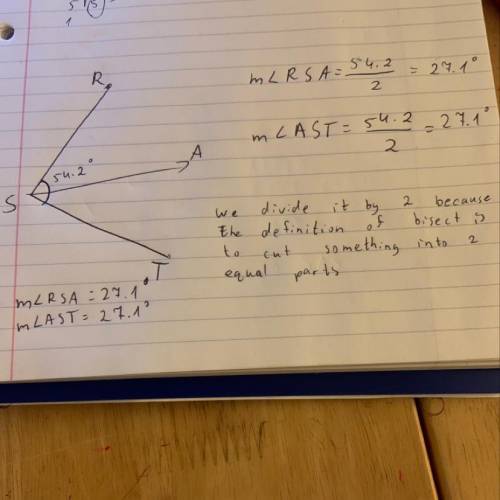 5
1
R
54.2°
A
S
T
m∠RSA = 27.1°
m∠AST = 27.1°
m∠RSA = 54.2/2 = 27.1°
m∠AST = 54.2/2 = 27.1°
we divide it by 2 because
the definition of bisect is
to cut something into 2
equal parts